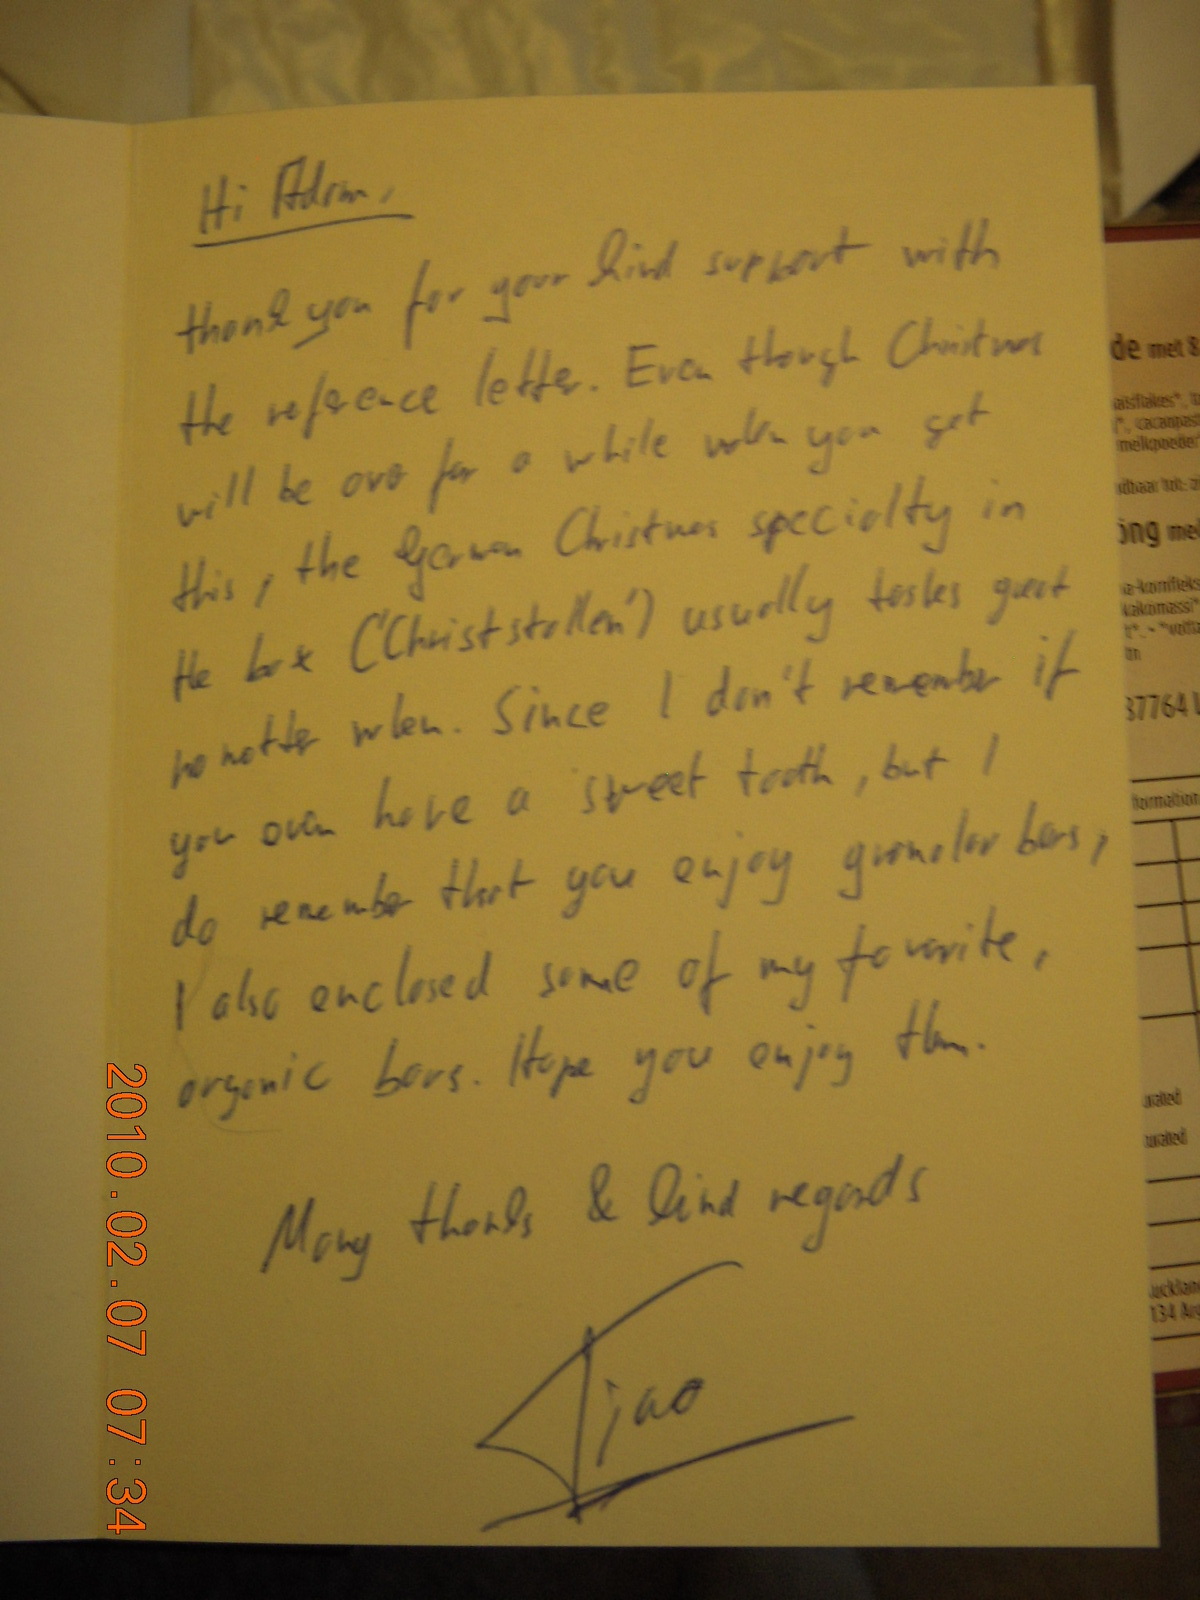 Hi Adam,
thank you for your kind support with
the reference letter. Even though Christmas
will be over for a while when you get
this, the German Christmas specialty in
the box ('Christstollen') usually tastes great
no matter when. Since I don't remember if
you even have a sweet tooth, but I
do remember that you enjoy granolar bars,
I also enclosed some of my favorite,
organic bars. Hope you enjoy them.
Many thanks & kind regards
2010.02.07 07:34
de met 8
öng me
37764
formation
urated
urated
134